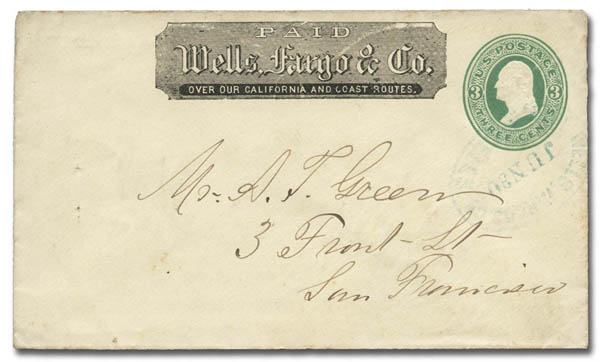 PAID
Wells, Fargo & Co.
OVER OUR CALIFORNIA AND COAST ROUTES.
U.S. POSTAGE
3 3
THREE CENTS
JUN 30
Mr. A. T. Green
3 Front St
San Francisco